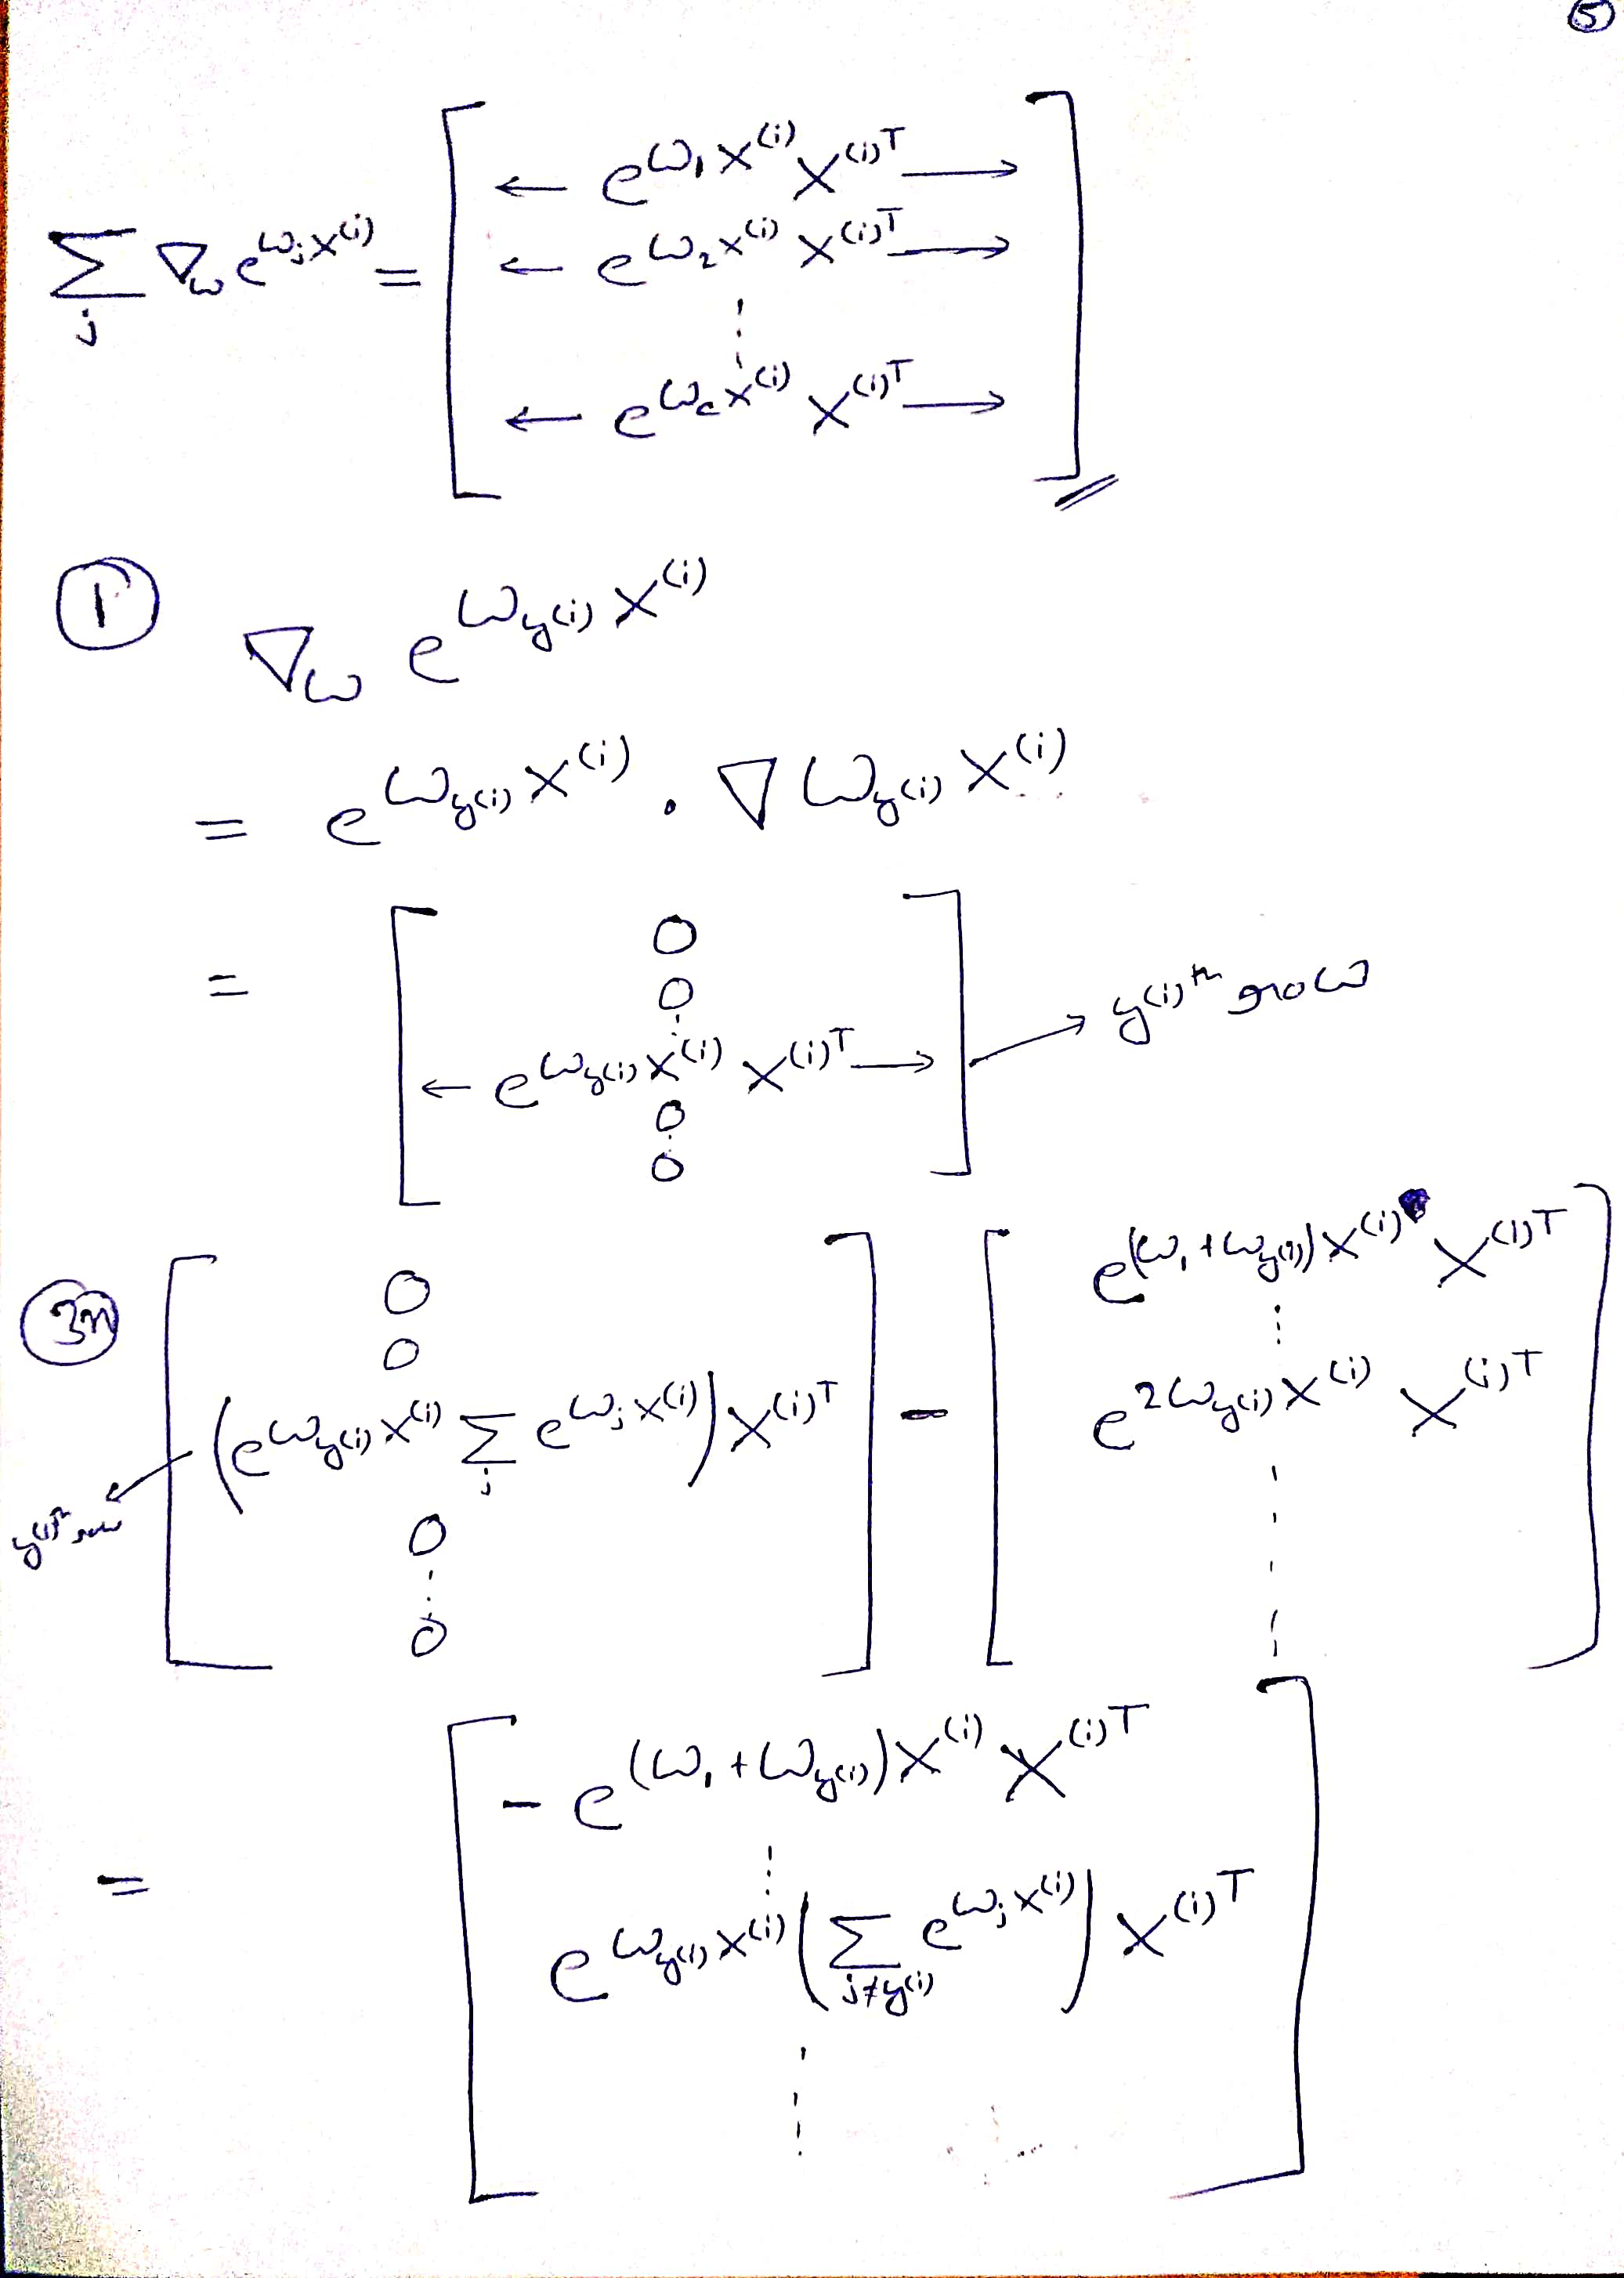 ⑤
$\sum_{j} \nabla_{\omega} e^{\omega_j x^{(i)}} = \begin{bmatrix} \leftarrow e^{\omega_1 x^{(i)}} x^{(i)T} \rightarrow \\ \leftarrow e^{\omega_2 x^{(i)}} x^{(i)T} \rightarrow \\ \vdots \\ \leftarrow e^{\omega_c x^{(i)}} x^{(i)T} \rightarrow \end{bmatrix}$
① $\nabla_{\omega} e^{\omega_{y^{(i)}} x^{(i)}}$
$= e^{\omega_{y^{(i)}} x^{(i)}} \cdot \nabla \omega_{y^{(i)}} x^{(i)}$
$= \begin{bmatrix} 0 \\ 0 \\ \vdots \\ \leftarrow e^{\omega_{y^{(i)}} x^{(i)}} x^{(i)T} \rightarrow \\ 0 \\ \vdots \\ 0 \end{bmatrix} \rightarrow y^{(i)th}$ row
$\begin{bmatrix} 0 \\ 0 \\ (e^{\omega_{y^{(i)}} x^{(i)}} \sum_{j} e^{\omega_j x^{(i)}}) x^{(i)T} \\ 0 \\ \vdots \\ 0 \end{bmatrix} - \begin{bmatrix} e^{(\omega_1 + \omega_{y^{(i)}}) x^{(i)}} x^{(i)T} \\ \vdots \\ e^{2\omega_{y^{(i)}} x^{(i)}} x^{(i)T} \\ \vdots \end{bmatrix}$
$y^{(i)th}$ row
$= \begin{bmatrix} -e^{(\omega_1 + \omega_{y^{(i)}}) x^{(i)}} x^{(i)T} \\ \vdots \\ e^{\omega_{y^{(i)}} x^{(i)}} \left( \sum_{j \neq y^{(i)}} e^{\omega_j x^{(i)}} \right) x^{(i)T} \\ \vdots \end{bmatrix}$